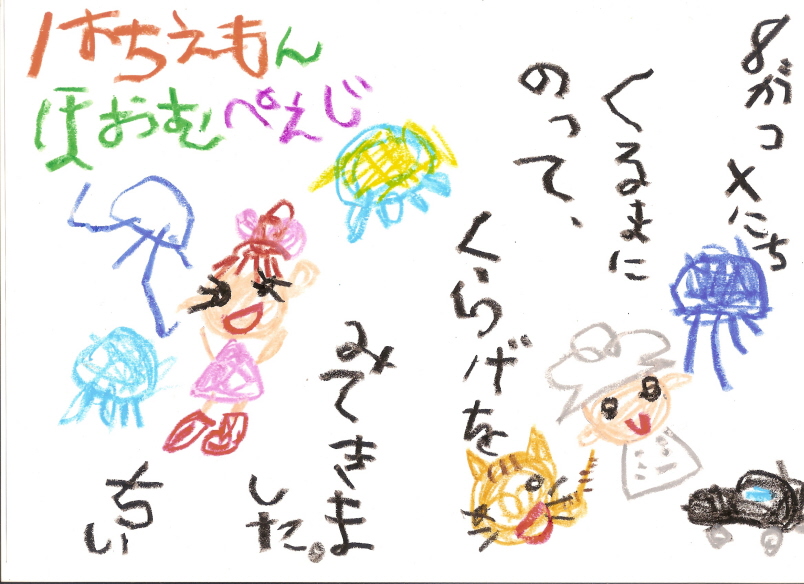 はちえもん
ほおむぺえじ
8がつ×にち
くるまに
のって、
くらげを
みてきま
した。
ちい